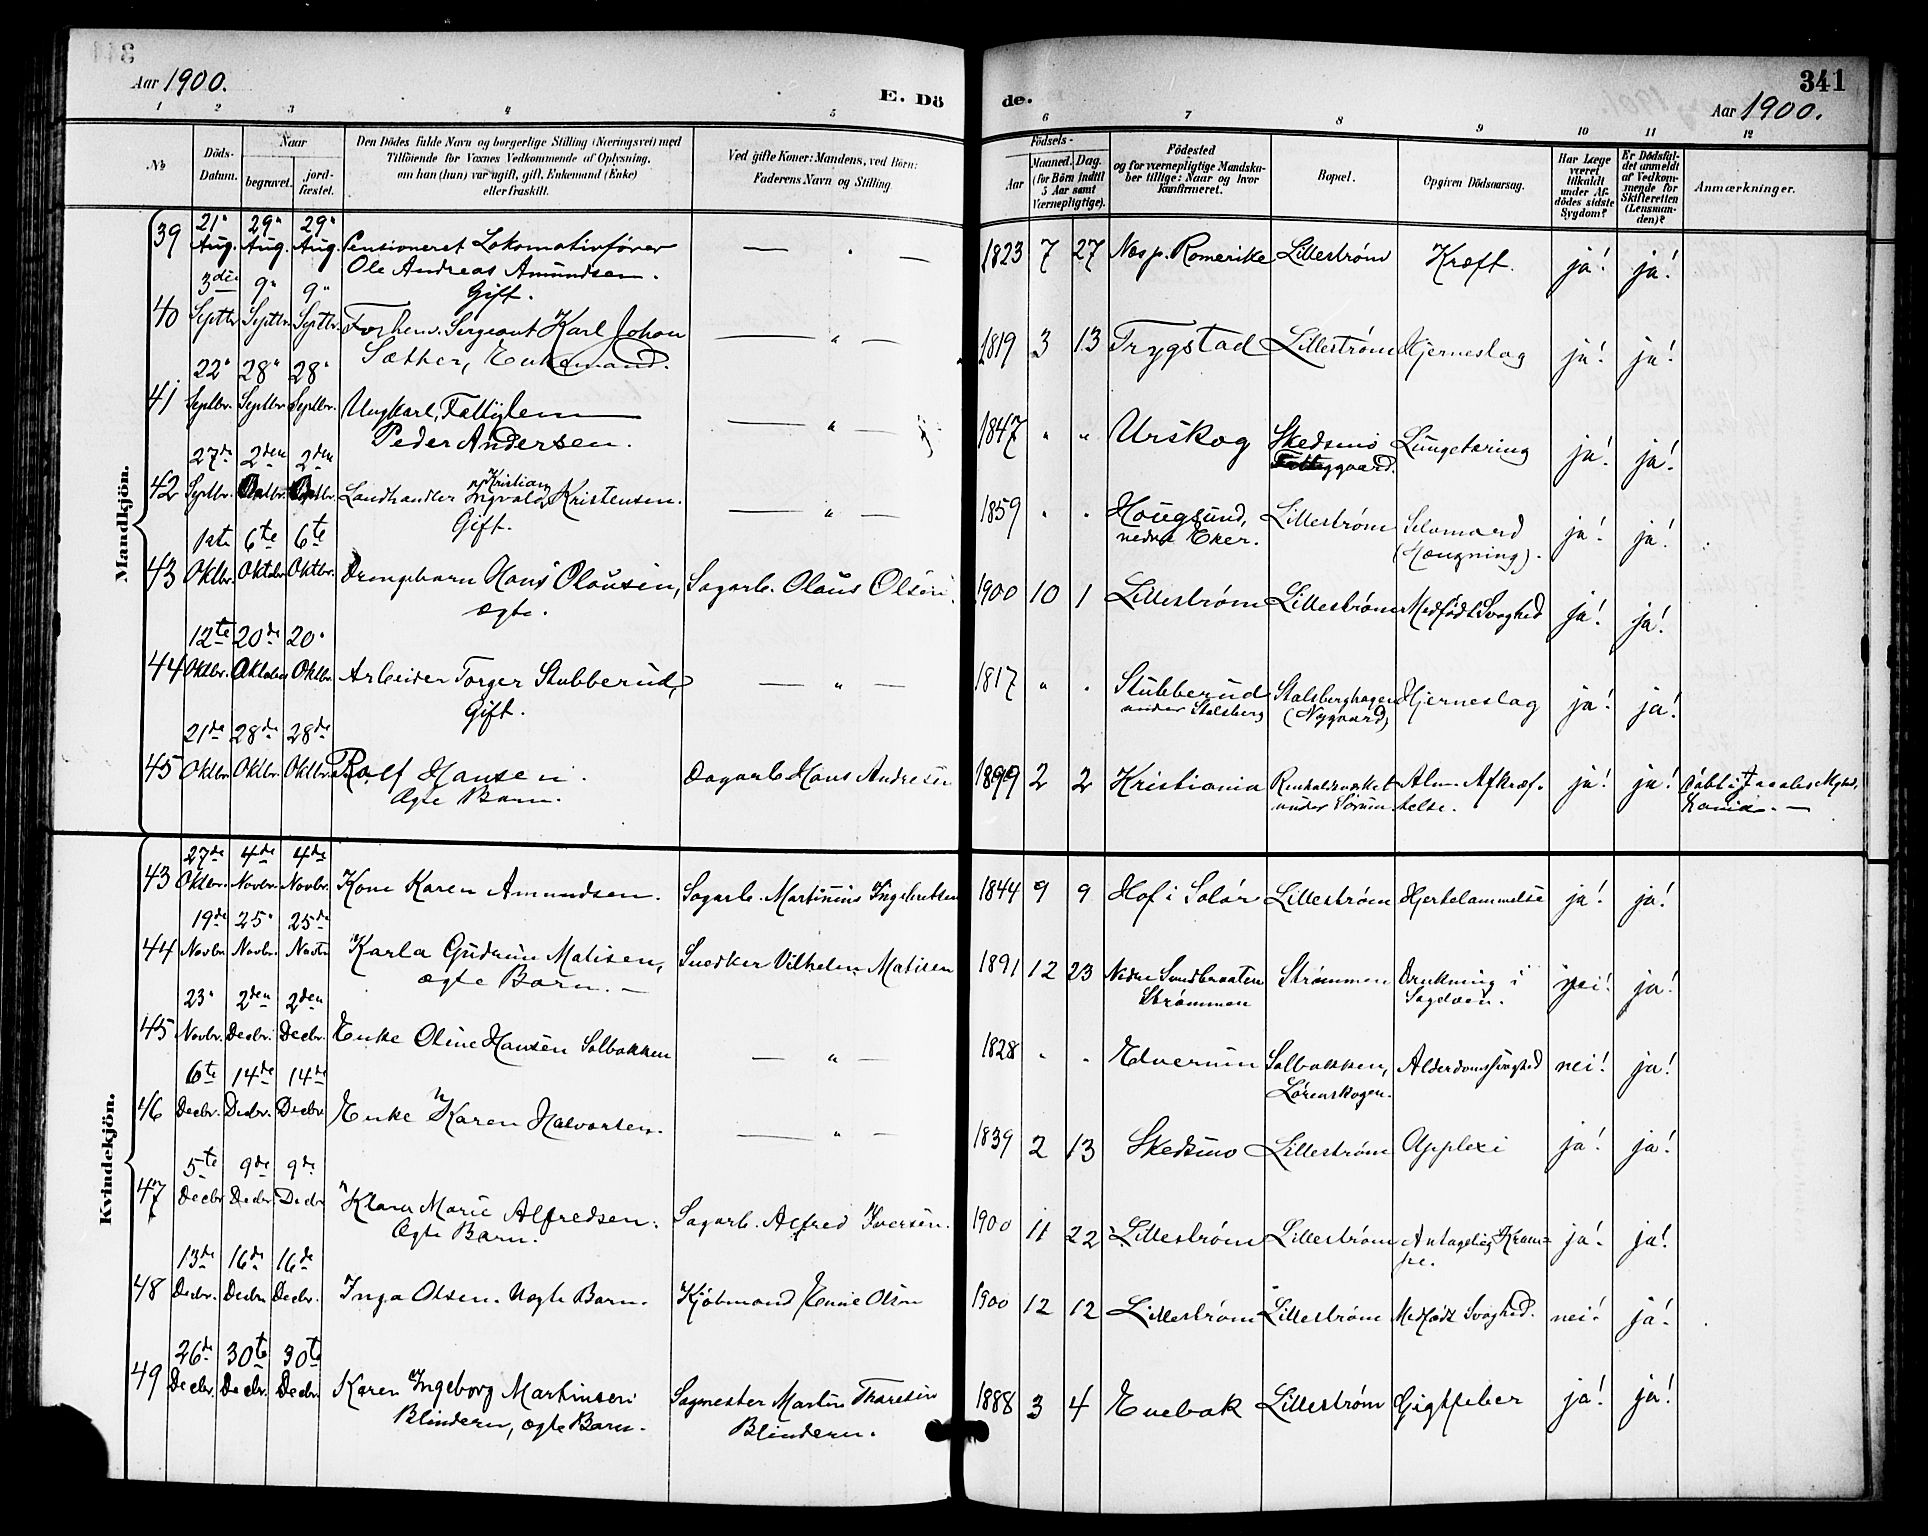 Aar 1900.
E. Dö
de.
341
Aar 1900.
1 2 3 4 5 6 7 8 9 10 11 12
№
Döds-
Datum.
Naar
begravet.
jord-
fæstet.
Den Dödes fulde Navn og borgerlige Stilling (Næringsvei) med
Tilföiende for Voxnes Vedkommende af Oplysning,
om han (hun) var ugift, gift, Enkemand (Enke)
eller fraskilt.
Ved gifte Koner: Mandens, ved Börn:
Faderens Navn og Stilling.
Födsels-
Aar
Maaned. Dag.
(for Börn indtil
5 Aar samt
Værnepligtige).
Födested
og for værnepligtige Mandska-
ber tillige: Naar og hvor
konfirmeret.
Bopæl.
Opgiven Dödsaarsag.
Har Læge
været
tilkaldt
under Af-
dödes sidste
Sygdom?
Er Dödsfal-
det anmeldt
af Vedkom-
mende for
Skifteretten
(Lensman-
den)?
Anmærkninger.
Mandkjön.
39 21" Aug. 29" Aug. 29" Aug. Pensioneret Lokomotivfører
Ole Andreas Amundsen.
Gift.
— " — 1823 7 27 Nes p. Romerike Lillestrøm Kræft. ja! ja!
40 3die Septbr. 9" Septbr. 9" Septbr. Forhenv. Sergeant Karl Johan
Sæther, Enkemand.
— " — 1819 3 13 Trygstad Lillestrøm Hjerneslag ja! ja!
41 22" Septbr. 28" Septbr. 28" Septbr. Ungkarl, Fattiglem
Peder Andersen.
— " — 1847 " " Urskog Skedsmo
Fattiggaard. Lungetæring ja! ja!
42 27de Septbr. 2den Oktbr. 2den Oktbr. Landhandler Ingvald Kristian Kristensen.
Gift.
— " — 1859 " " Hougsund,
nedre Eker. Lillestrøm Selvmord
(Hængning). ja! ja!
43 1ste Oktbr. 6te Oktbr. 6te Oktbr. Drengebarn Hans Olausen,
ægte.
Sagarb. Olaus Olsen. 1900 10 1 Lillestrøm Lillestrøm Medfødt Svaghed ja! ja!
44 12te Oktbr. 20de Oktober 20" Oktbr. Arbeider Torger Stubberud,
Gift.
— " — 1817 " " Stubberud
under Stalsberg Stalsberghagen
(Nygaard) Hjerneslag ja! ja!
45 21de Oktbr. 28de Oktbr. 28de Oktbr. Rolf Hansen.
Ægte Barn.
Dagarb. Hans Andresen 1899 2 2 Kristiania
under Sörum Alm. Afkræf-
telse. ja! ja! Döbt i
Kvindekjön.
43 27de Oktbr. 4de Novbr. 4de Novbr. Kone Karen Amundsen. Sagarb. Martinius Ingebretsen 1844 9 9 Hof i Solör Lillestrøm Hjertelammelse ja! ja!
44 19de Novbr. 25" Novbr. 25de Novbr. Karla Gudrun Matisen,
ægte Barn. —
Snedker Vilhelm Matisen 1891 12 23 Nedre Sundbraaten
Strømmen Strømmen Drukning i
Sagelven. nei! ja!
45 23" Novbr. 2den Decbr. 2den Decbr. Enke Oline Hansen Solbakken
— " — 1828 " " Elverum Solbakken,
Lørenskogen. Alderdomssvaghed nei! ja!
46 6te Decbr. 14de Decbr. 14de Decbr. Enke Karen Halvorsen.
— " — 1839 2 13 Skedsmo Lillestrøm Applexi ja! ja!
47 5te Decbr. 9de Decbr. 9de Decbr. Klara Marie Alfredsen.
Ægte Barn.
Sagarb. Alfred Iversen. 1900 11 22 Lillestrøm Lillestrøm Antagelig Kram-
pe. ja! ja!
48 13de Decbr. 16de Decbr. 16de Decbr. Inga Olsen. Uægte Barn. Kjøbmand Olsen 1900 12 12 Lillestrøm Lillestrøm Medfødt Svaghed. nei! ja!
49 26de Decbr. 30te Decbr. 30te Decbr. Karen Ingeborg Martinsen
Blindern, ægte Barn.
Sagmester Martin Thoresen
Blindern.
1888 3 4 Enebak Lillestrøm Gigtfeber ja! ja!